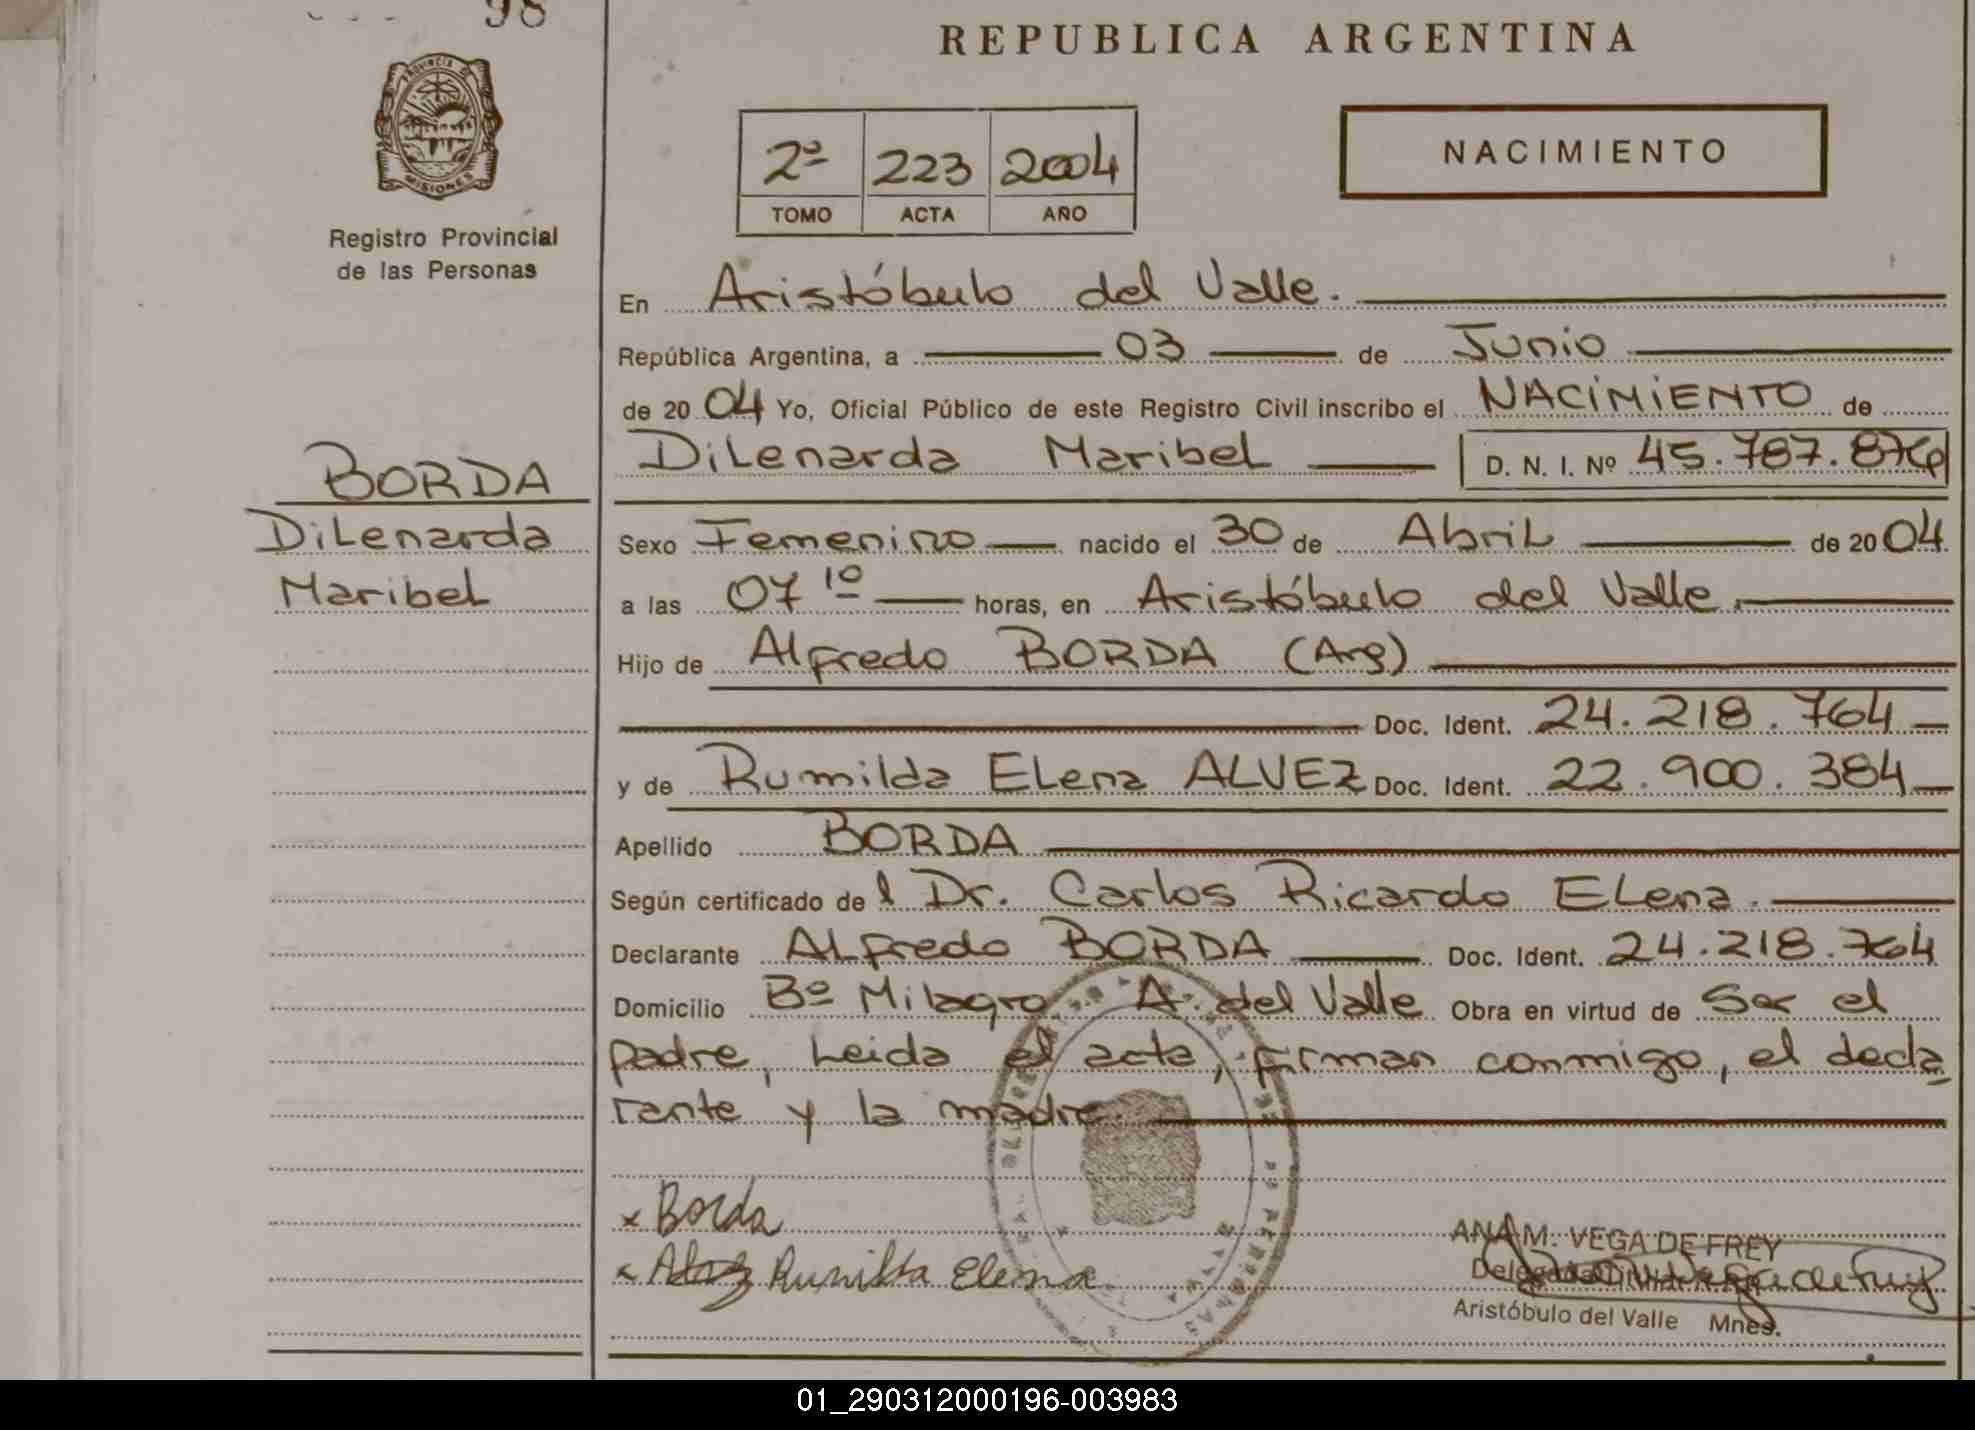 98
REPUBLICA ARGENTINA
PROVINCIA DE
MISIONES
Registro Provincial
de las Personas
2º 223 2004
TOMO ACTA AÑO
NACIMIENTO
En Aristóbulo del Valle.
República Argentina, a 03 de Junio
de 2004 Yo, Oficial Público de este Registro Civil inscribo el NACIMIENTO de
DiLenarda MaribeL D. N. I. Nº 45.787.876
BORDA
DiLenarda
MaribeL
Sexo Femenino nacido el 30 de AbriL de 2004
a las 07 10 horas, en Aristóbulo del Valle.
Hijo de Alfredo BORDA (Arg)
Doc. Ident. 24.218.764
y de Rumilda ELena ALVEZ Doc. Ident. 22.900.384
Apellido BORDA
Según certificado de l Dr. Carlos Ricardo ELena.
Declarante ALfredo BORDA Doc. Ident. 24.218.764
Domicilio Bº Milagro A. del Valle Obra en virtud de Ser el
padre, Leida el acta, firman conmigo, el decla
rante y la madre.
x Borda
x Alvez Rumilda Elena
ANA M. VEGA DE FREY
Aristóbulo del Valle Mnes.
01_290312000196-003983